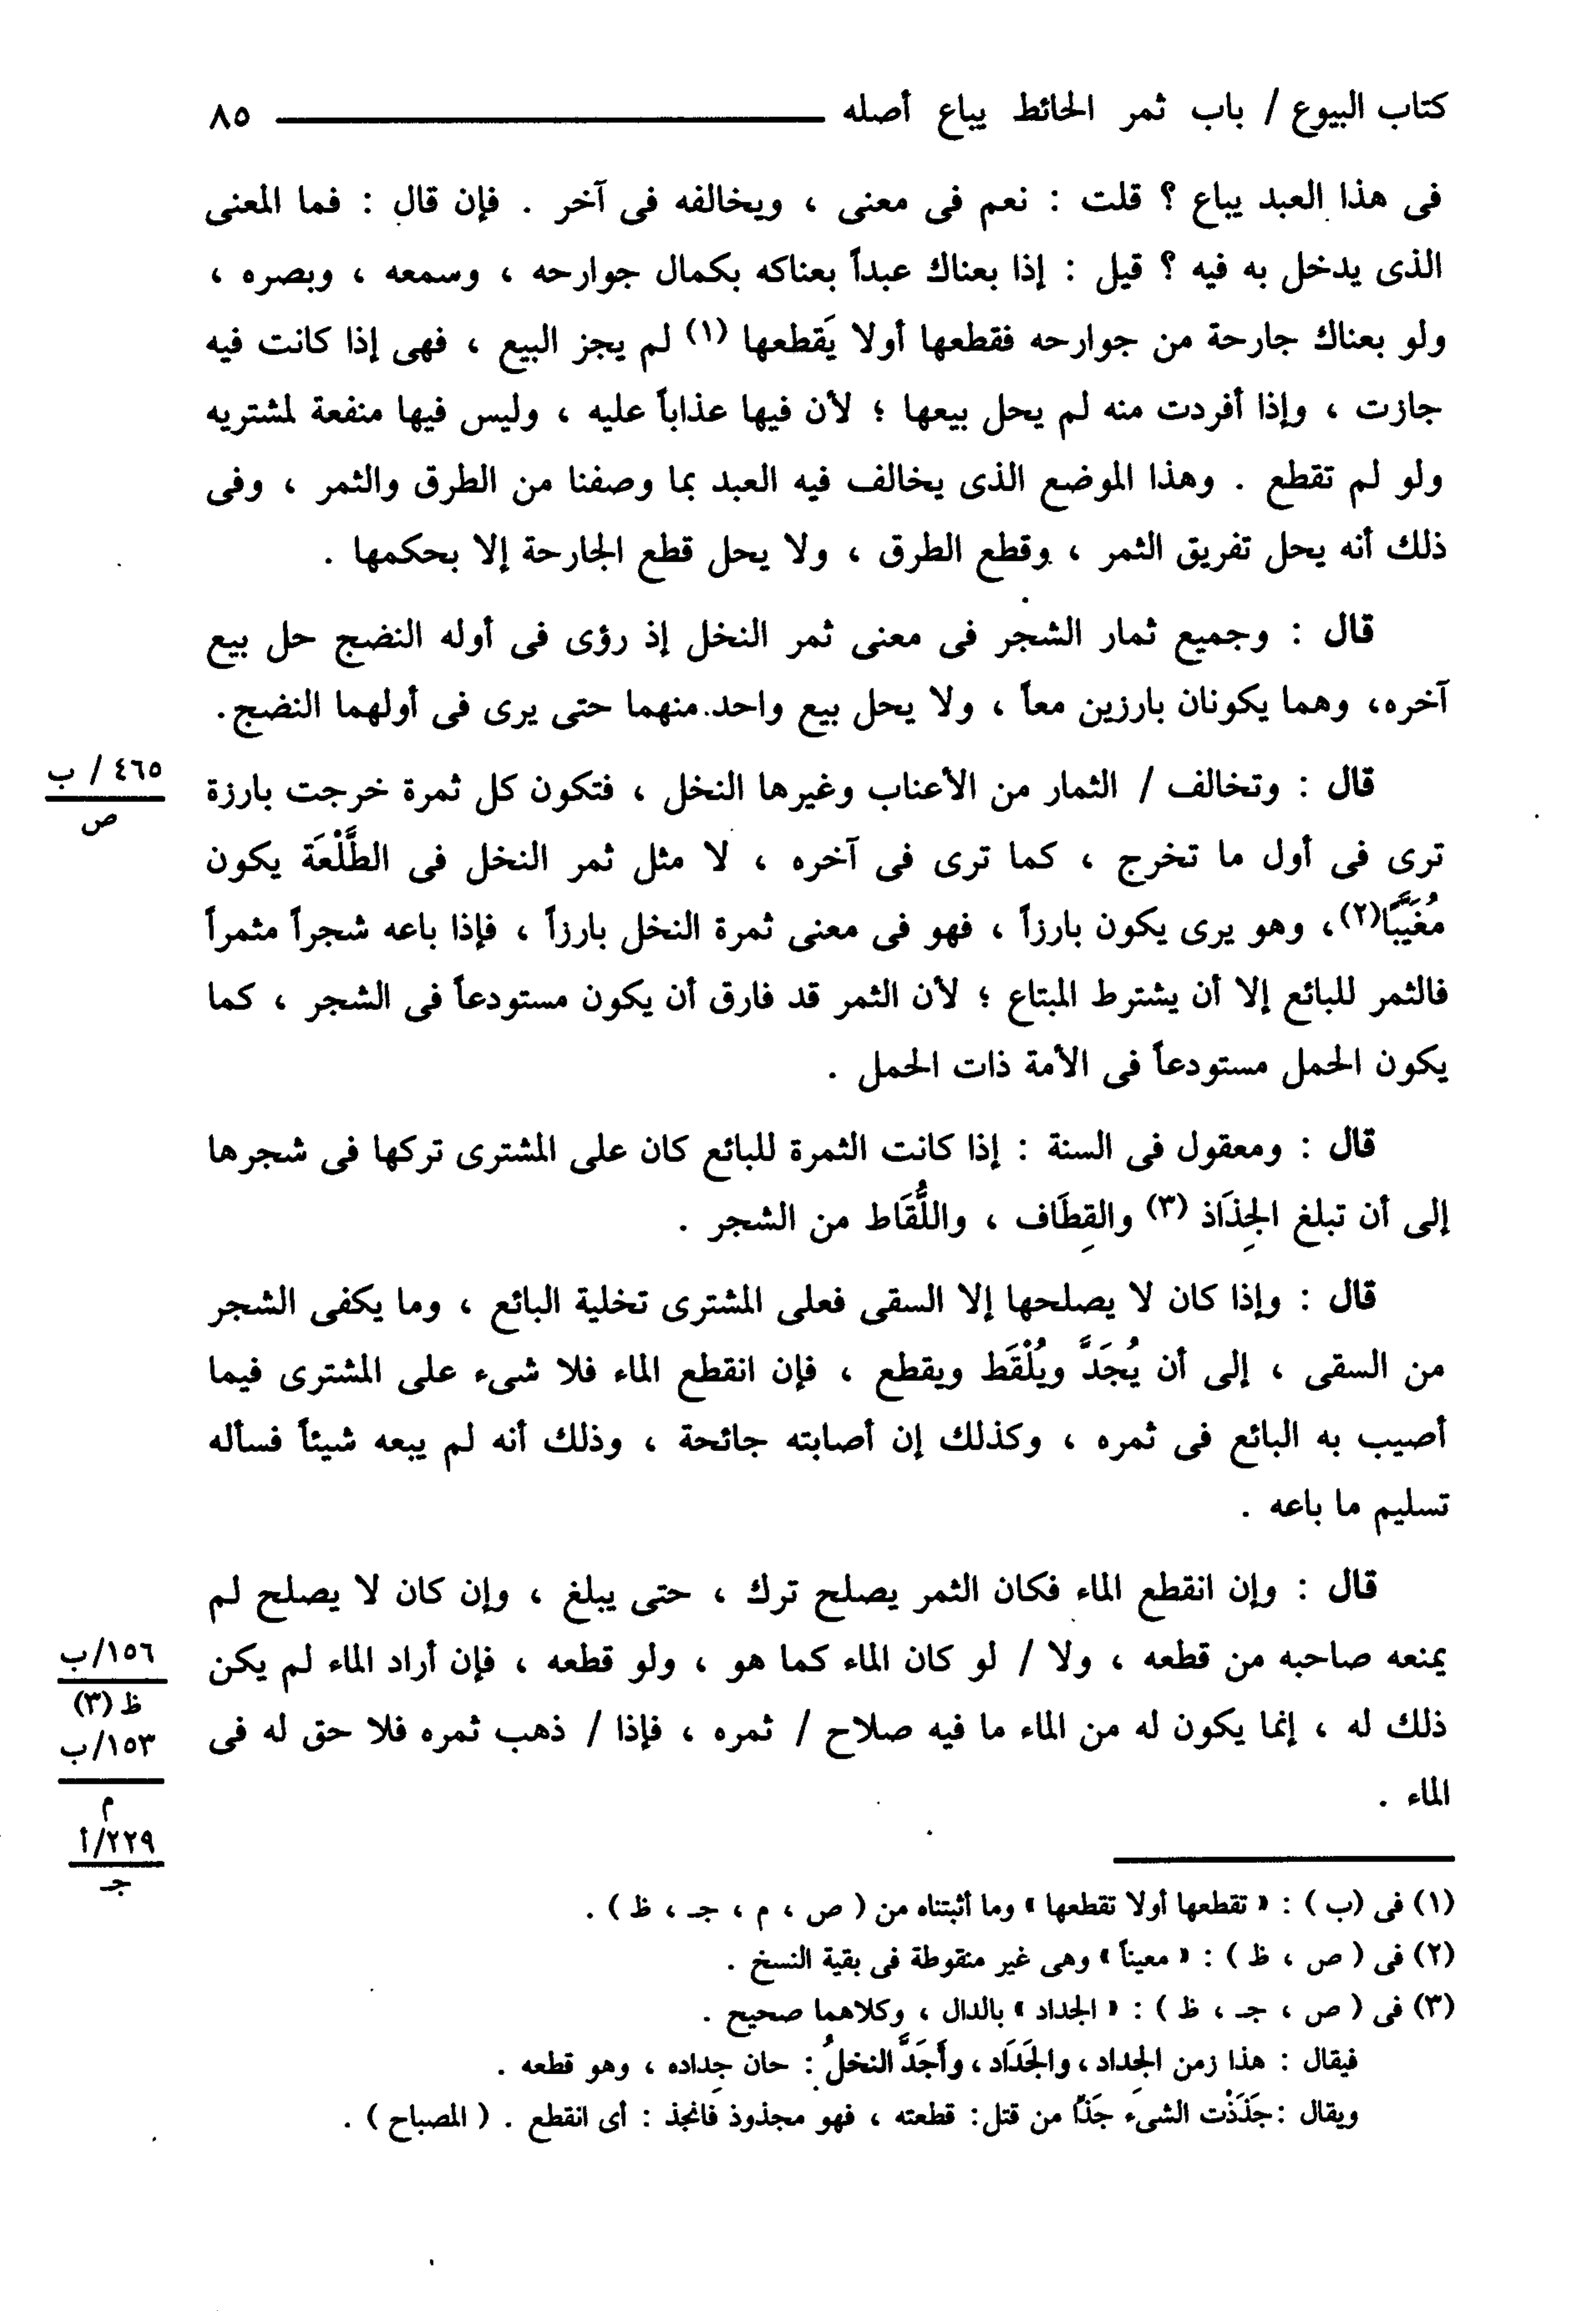 كتاب البيوع / باب ثمر الحائط يباع أصله ــــــــــــــــــــ ٨٥
فى هذا العبد يباع ؟ قلت : نعم فى معنى ، ويخالفه فى آخر . فإن قال : فما المعنى
الذى يدخل به فيه ؟ قيل : إذا بعناك عبداً بعناكه بكمال جوارحه ، وسمعه ، وبصره ،
ولو بعناك جارحة من جوارحه فقطعها أولا يَقطعها (١) لم يجز البيع ، فهى إذا كانت فيه
جازت ، وإذا أفردت منه لم يحل بيعها ؛ لأن فيها عذاباً عليه ، وليس فيها منفعة لمشتريه
ولو لم تقطع . وهذا الموضع الذى يخالف فيه العبد بما وصفنا من الطرق والثمر ، وفى
ذلك أنه يحل تفريق الثمر ، وقطع الطرق ، ولا يحل قطع الجارحة إلا بحكمها .
قال : وجميع ثمار الشجر فى معنى ثمر النخل إذ رؤى فى أوله النضج حل بيع
آخره، وهما يكونان بارزين معاً ، ولا يحل بيع واحد منهما حتى يرى فى أولهما النضج.
قال : وتخالف / الثمار من الأعناب وغيرها النخل ، فتكون كل ثمرة خرجت بارزة
٤٦٥ / ب
ص
ترى فى أول ما تخرج ، كما ترى فى آخره ، لا مثل ثمر النخل فى الطَّلْعَة يكون
مُغَيَّبًا(٢)، وهو يرى يكون بارزاً ، فهو فى معنى ثمرة النخل بارزاً ، فإذا باعه شجراً مثمراً
فالثمر للبائع إلا أن يشترط المبتاع ؛ لأن الثمر قد فارق أن يكون مستودعاً فى الشجر ، كما
يكون الحمل مستودعاً فى الأمة ذات الحمل .
قال : ومعقول فى السنة : إذا كانت الثمرة للبائع كان على المشترى تركها فى شجرها
إلى أن تبلغ الجِذَاذ (٣) والقِطَاف ، واللُّقَاط من الشجر .
قال : وإذا كان لا يصلحها إلا السقى فعلى المشترى تخلية البائع ، وما يكفى الشجر
من السقى ، إلى أن يُجَدَّ ويُلْقَط ويقطع ، فإن انقطع الماء فلا شىء على المشترى فيما
أصيب به البائع فى ثمره ، وكذلك إن أصابته جائحة ، وذلك أنه لم يبعه شيئاً فسأله
تسليم ما باعه .
قال : وإن انقطع الماء فكان الثمر يصلح ترك ، حتى يبلغ ، وإن كان لا يصلح لم
يمنعه صاحبه من قطعه ، ولا / لو كان الماء كما هو ، ولو قطعه ، فإن أراد الماء لم يكن
١٥٦/ب
ظ (٣)
ذلك له ، إنما يكون له من الماء ما فيه صلاح / ثمره ، فإذا / ذهب ثمره فلا حق له فى
١٥٣/ب
م
الماء .
٢٢٩/أ
جـ
(١) فى (ب ) : « تقطعها أولا تقطعها » وما أثبتناه من ( ص ، م ، جـ ، ظ ) .
(٢) فى ( ص ، ظ ) : « معيناً » وهى غير منقوطة فى بقية النسخ .
(٣) فى ( ص ، جـ ، ظ ) : « الجداد » بالدال ، وكلاهما صحيح .
فيقال : هذا زمن الجِداد ، والجَدَاد ، وأَجَدَّ النخلُ : حان جِداده ، وهو قطعه .
ويقال : جَذَذْت الشىء جَذّاً من قتل: قطعته ، فهو مجذوذ فانجذ : أى انقطع . ( المصباح ) .